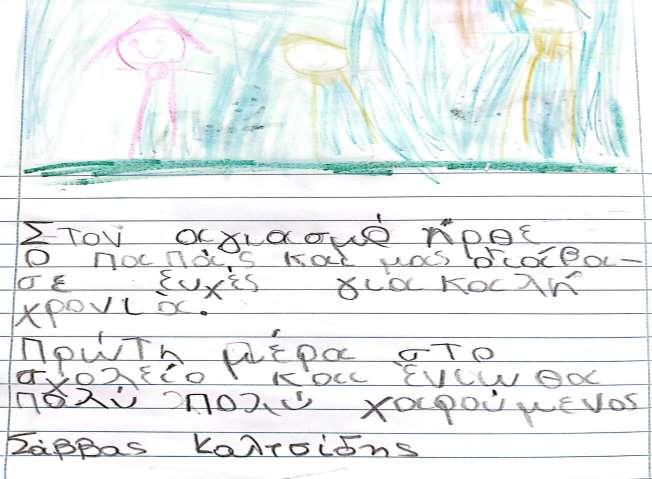 Στον αγιασμό ήρθε
ο παπάς και μας διάβα-
σε ευχές για καλή
χρονιά.
Πρώτη μέρα στο
σχολείο και ένιωθα
πολύ πολύ χαρούμενος
Σάββας Καλτσίδης